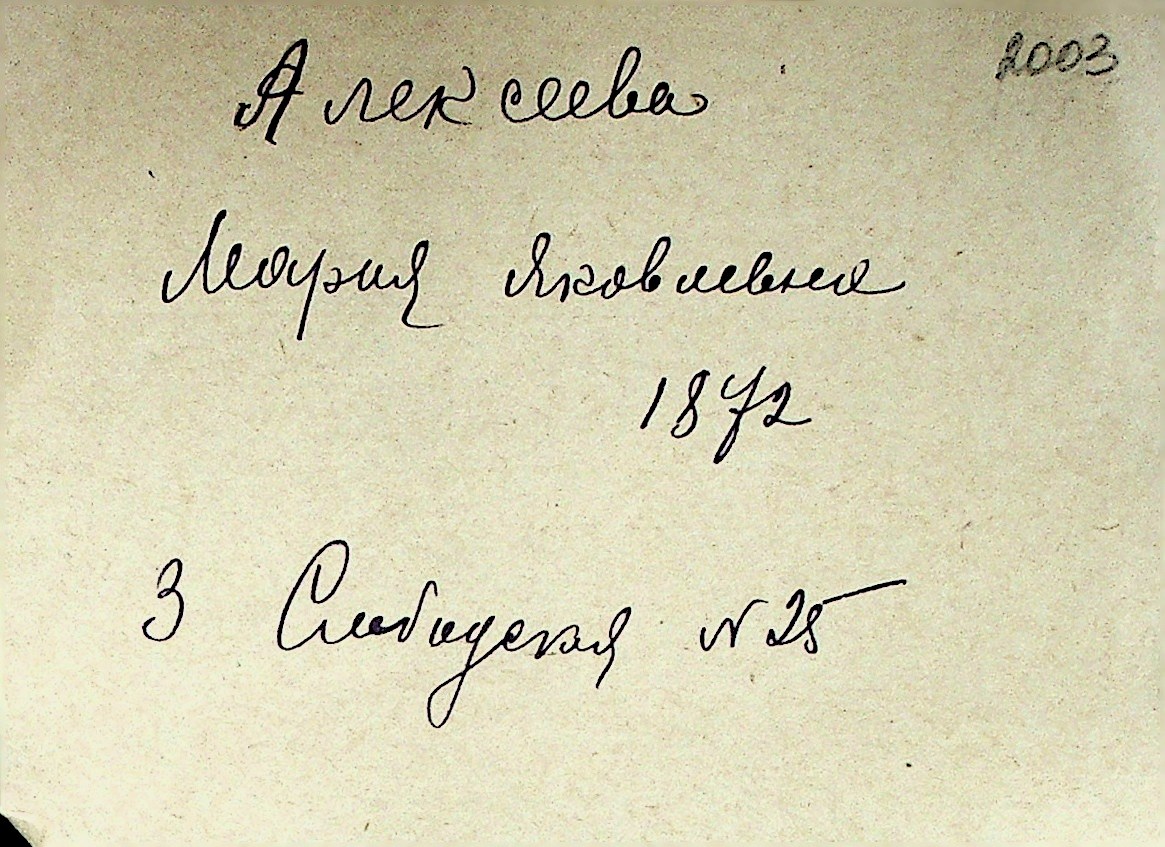 2003
Алексеева
Мария Яковлевна
1872
3 Слободская N 25